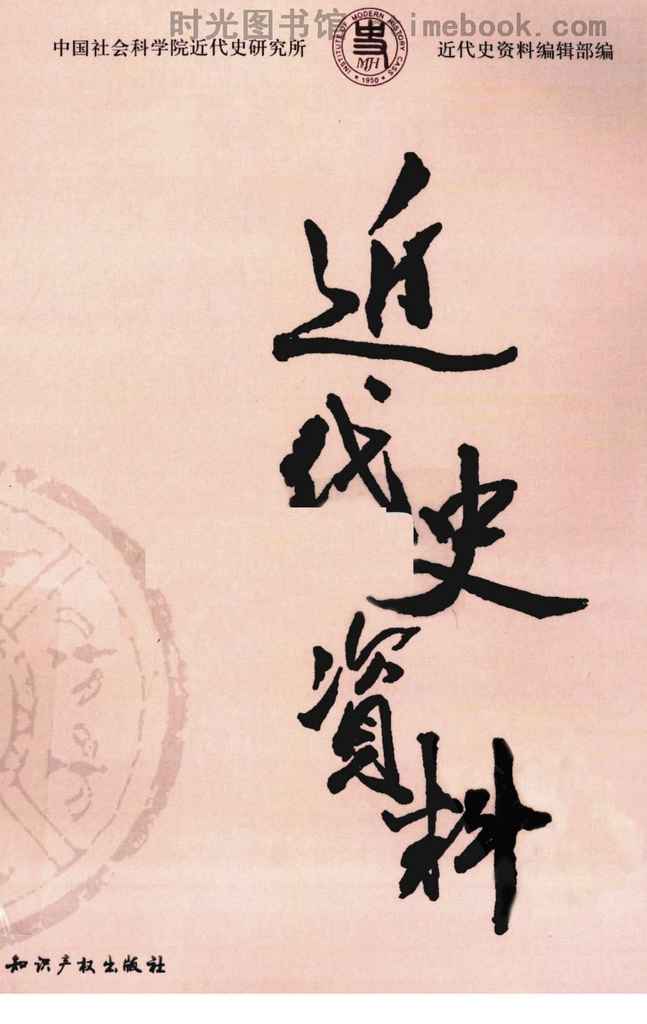 时光图书馆 imebook.com
中国社会科学院近代史研究所
INSTITUTE OF MODERN HISTORY CASS
MH
1950
近代史资料编辑部编
近代史資料
知识产权出版社